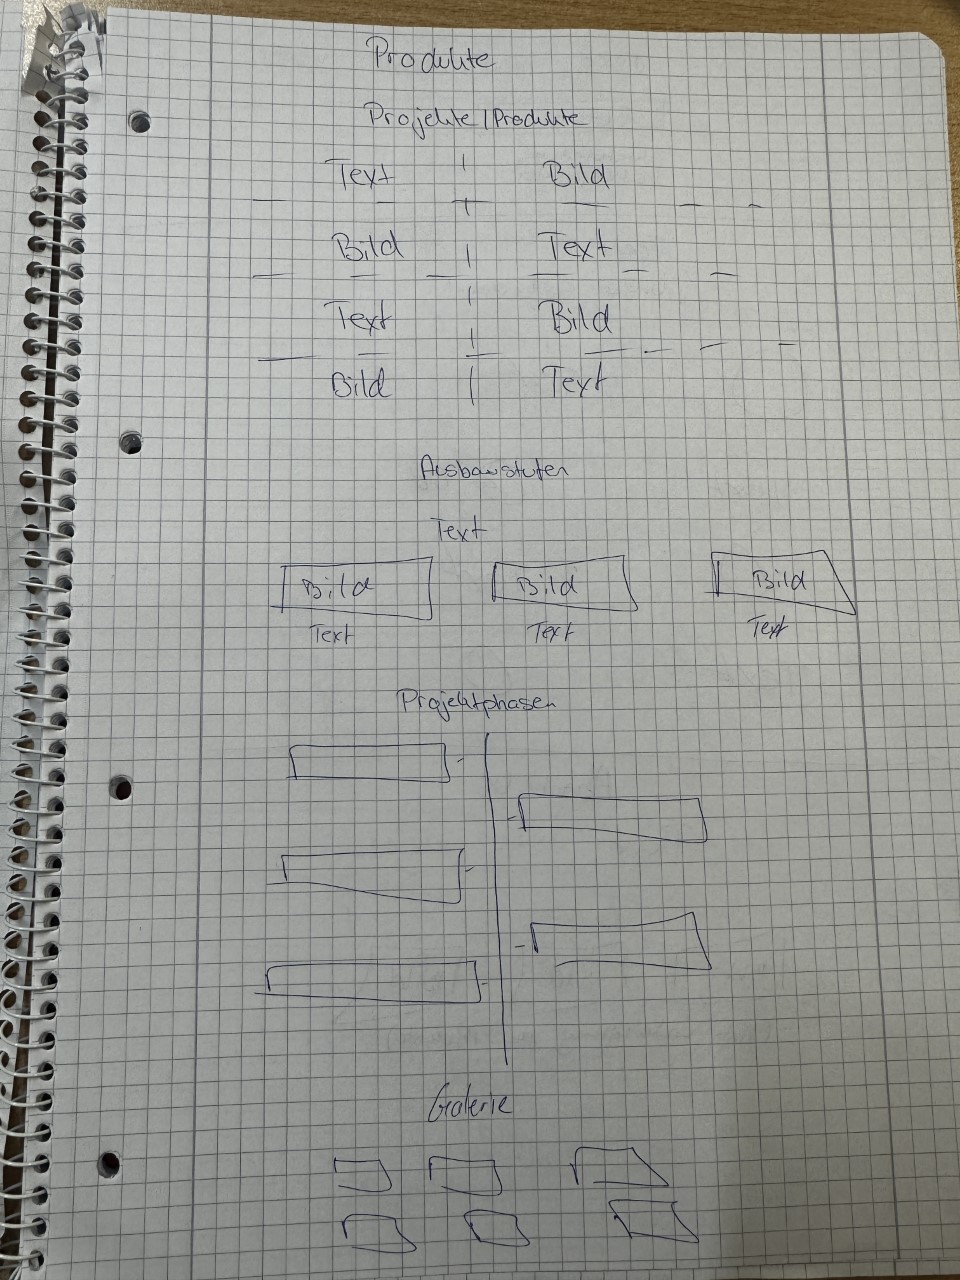 Produkte
Projekte/Produkte
Text Bild
Bild Text
Text Bild
Bild Text
Ausbaustufen
Text
Bild Bild Bild
Text Text Text
Projektphasen
Galerie